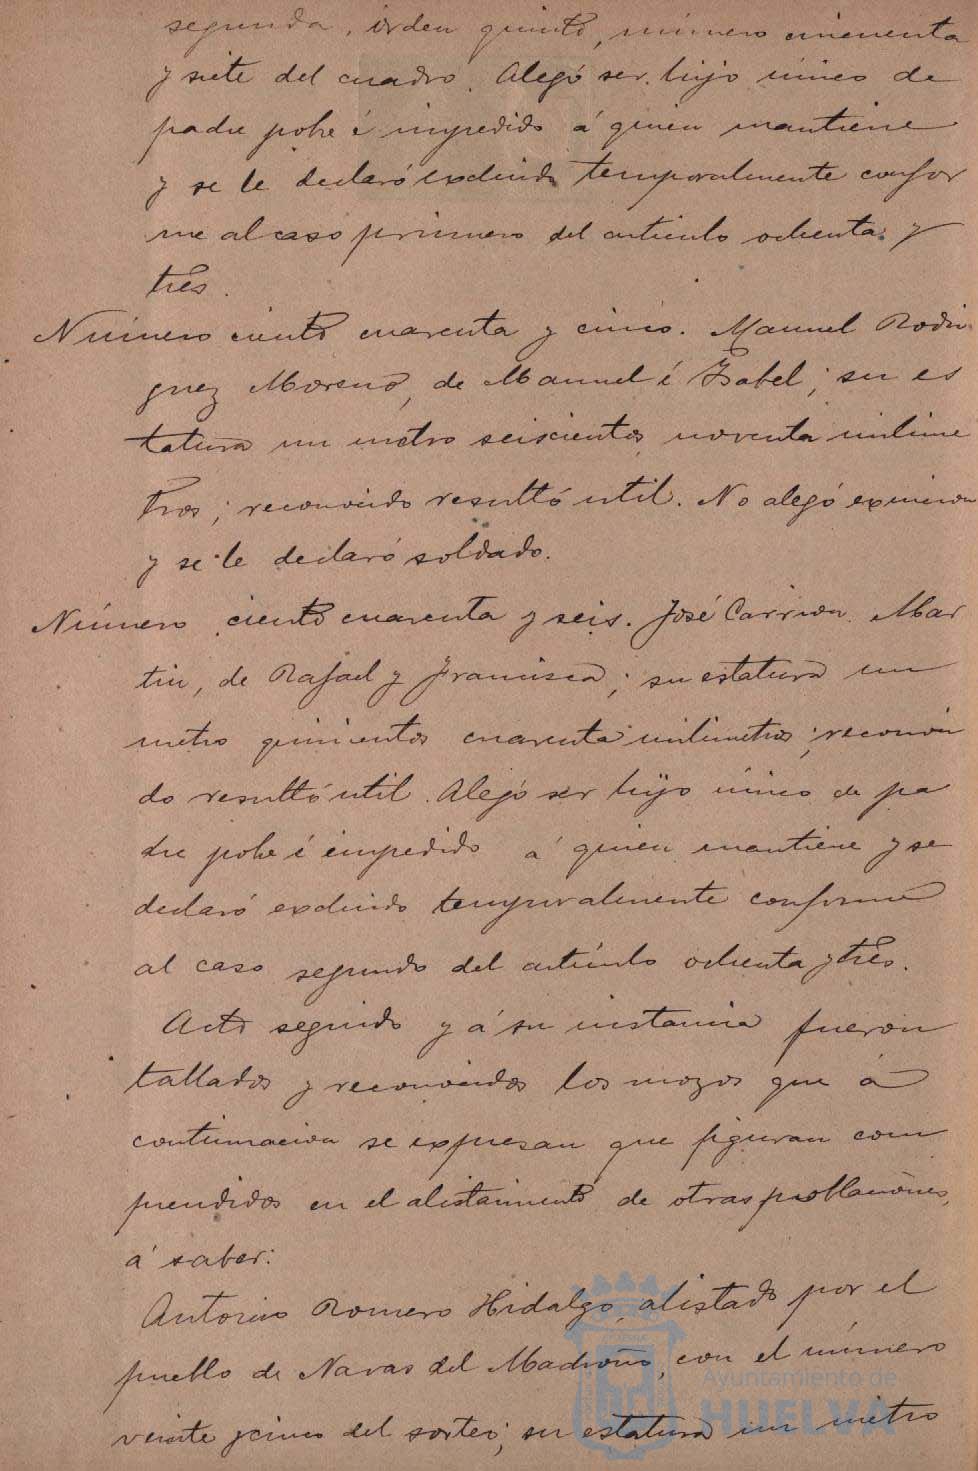 segunda, órden quinto, número cincuenta
y siete del cuadro. Alegó ser hijo único de
padre pobre é impedido á quien mantiene
y se le declaró excluido temporalmente confor
me al caso primero del articulo ochenta y
tres.
Número ciento cuarenta y cinco. Manuel Rodri
guez Moreno, de Manuel é Isabel; su es
tatura un metro seiscientos noventa milime
tros; reconocido resultó util. No alegó exencion
y se le declaró soldado.
Número ciento cuarenta y seis. José Carrion Mar
tin, de Rafael y Francisca; su estatura un
metro quinientos cuarenta milimetros; reconoci
do resultó util. Alegó ser hijo único de pa
dre pobre é impedido á quien mantiene y se
declaró excluido temporalmente conforme
al caso segundo del artículo ochenta y tres.
Acto seguido y á su instancia fueron
tallados y reconocidos los mozos que á
continuacion se expresan que figuran com
prendidos en el alistamiento de otras poblaciones,
á saber:
Antonio Romero Hidalgo, alistado por el
pueblo de Navas del Madroño, con el número
veinte y cinco del sorteo; su estatura un metro
Ayuntamiento de
HUELVA